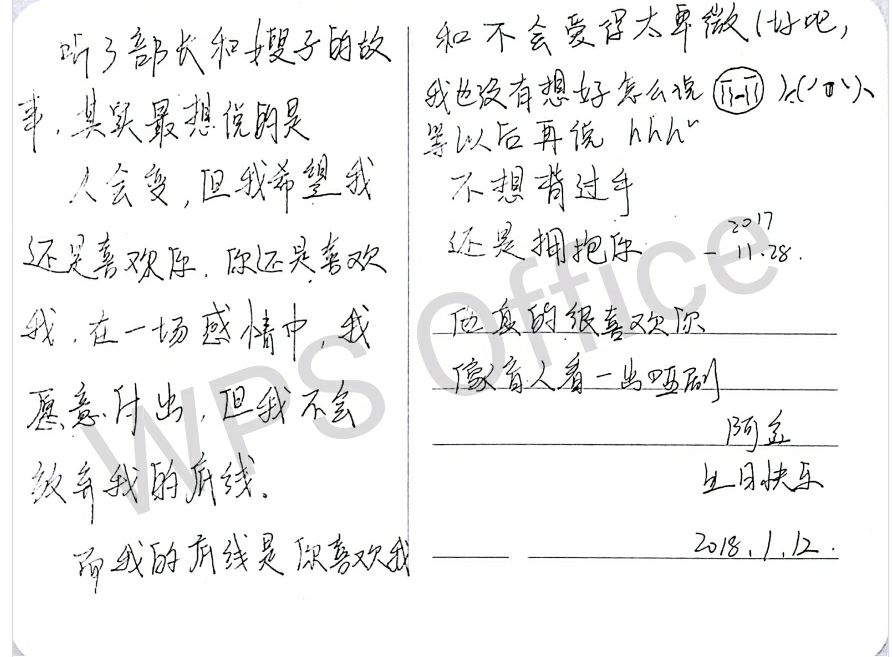 听了部长和嫂子的故
事，其实最想说的是
人会变，但我希望我
还是喜欢你，你还是喜欢
我，在一场感情中，我
愿意付出，但我不会
放弃我的底线．
而我的底线是你喜欢我
和不会爱得太卑微（好吧，
我也没有想好怎么说
等以后再说 hhh~
不想背过手
还是拥抱你
— 2017
11.28.
他真的很喜欢你
像盲人看一出哑剧
阿金
生日快乐
2018.1.12.
WPS Office